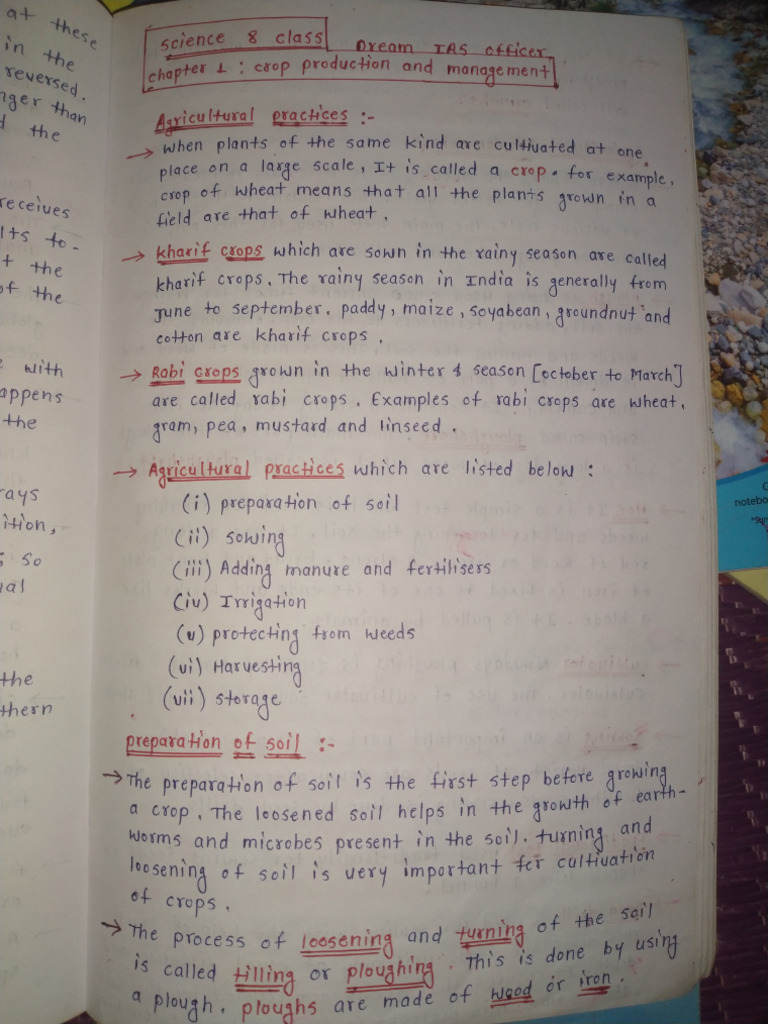 at these
in the
reversed.
nger than
d the
receives
lts to-
t the
of the
e with
appens
the
rays
ition,
s so
ual
the
thern
Science 8 class Dream IAS officer
chapter 1 : crop production and management
Agricultural practices :-
→ When plants of the same kind are cultivated at one
place on a large scale, It is called a crop. for example,
crop of wheat means that all the plants grown in a
field are that of wheat.
→ kharif crops which are sown in the rainy season are called
kharif crops. The rainy season in India is generally from
June to september. paddy, maize, soyabean, groundnut and
cotton are kharif crops.
→ Rabi crops grown in the winter season [october to March]
are called rabi crops. Examples of rabi crops are wheat,
gram, pea, mustard and linseed.
→ Agricultural practices which are listed below :
(i) preparation of soil
(ii) sowing
(iii) Adding manure and fertilisers
(iv) Irrigation
(v) protecting from weeds
(vi) Harvesting
(vii) storage
preparation of soil :-
→ The preparation of soil is the first step before growing
a crop. The loosened soil helps in the growth of earth-
worms and microbes present in the soil. turning and
loosening of soil is very important for cultivation
of crops.
→ The process of loosening and turning of the soil
is called tilling or ploughing. This is done by using
a plough. ploughs are made of wood or iron.
notebo